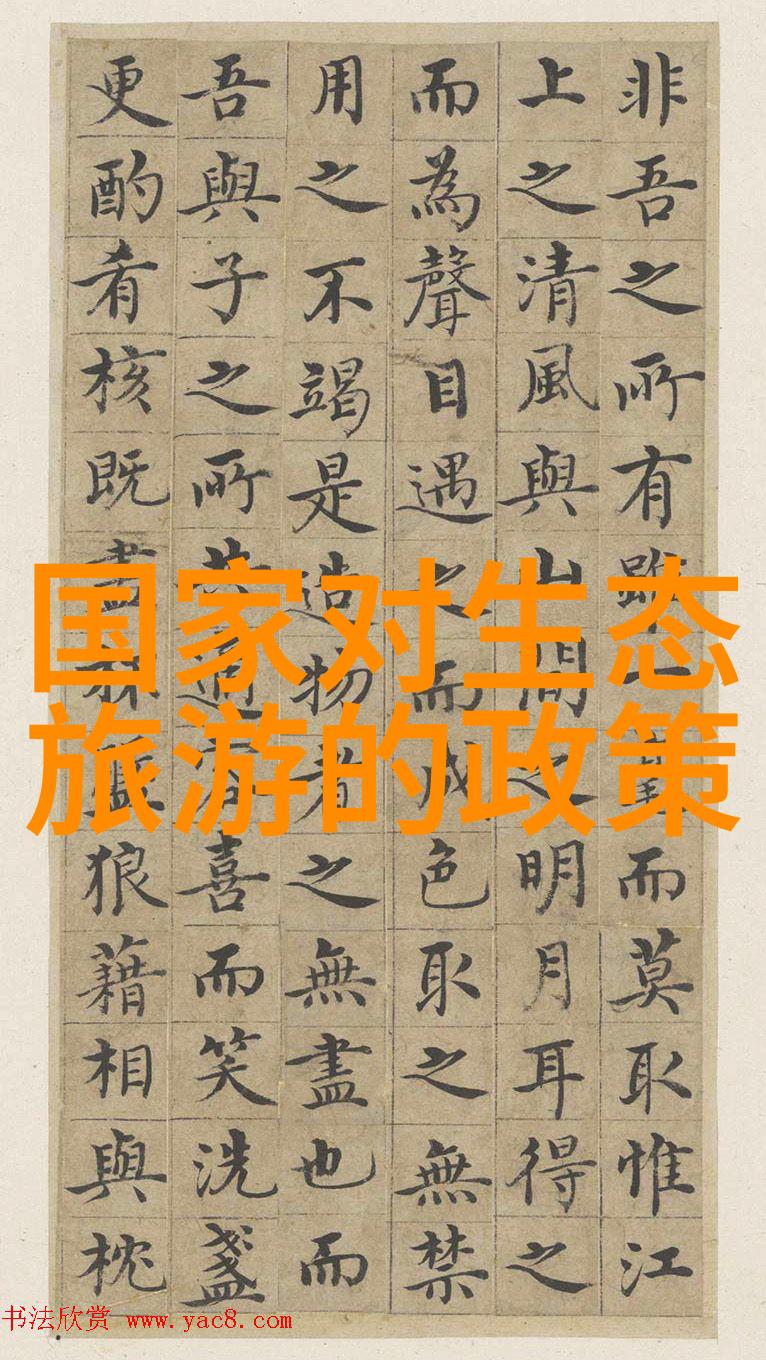 非吾之所有雖一毫而莫取惟江
上之清風與山間之明月耳得之
而為聲目遇之而成色取之無禁
用之不竭是造物者之無盡也而
吾與子之所共適客喜而笑洗盞
更酌肴核既盡杯盤狼藉相與枕
国家对生态
旅游的政策
书法欣赏 www.yac8.com